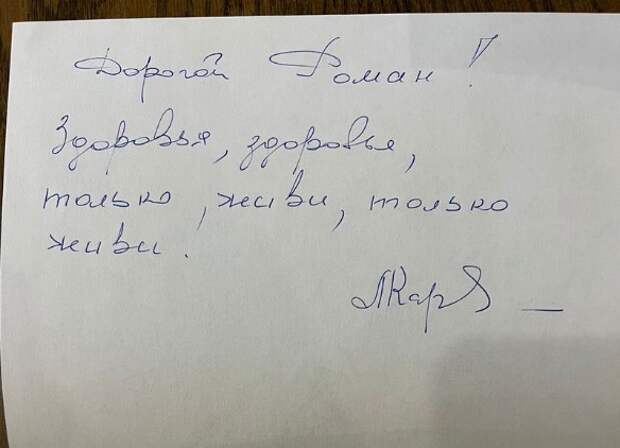 Дорогой Роман!
Здоровья, здоровья,
только живи, только
живи.